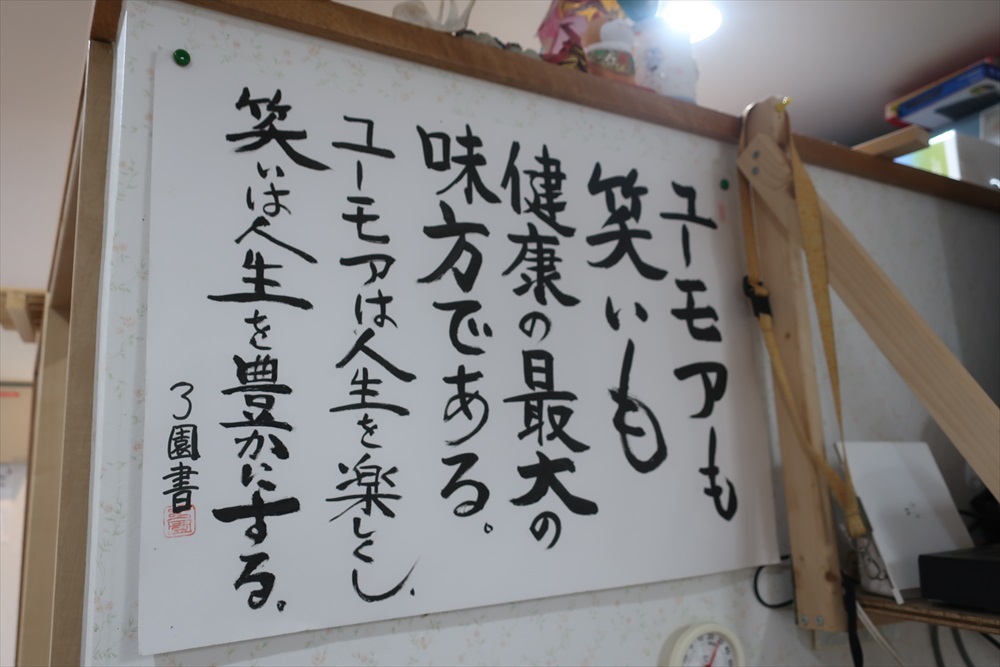 ユーモアも
笑いも
健康の最大の
味方である。
ユーモアは人生を楽しくし、
笑いは人生を豊かにする。
了園書